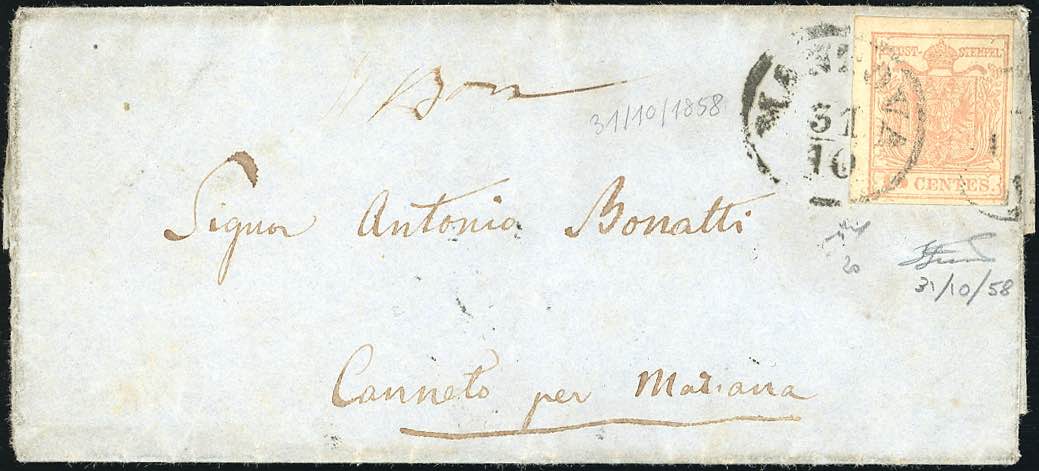 KK POST-STEMPEL
MANTOVA
31
10
15 CENTES.
31/10/1858
Signor Antonio Bonatti
31/10/58
20
Canneto per Mariana